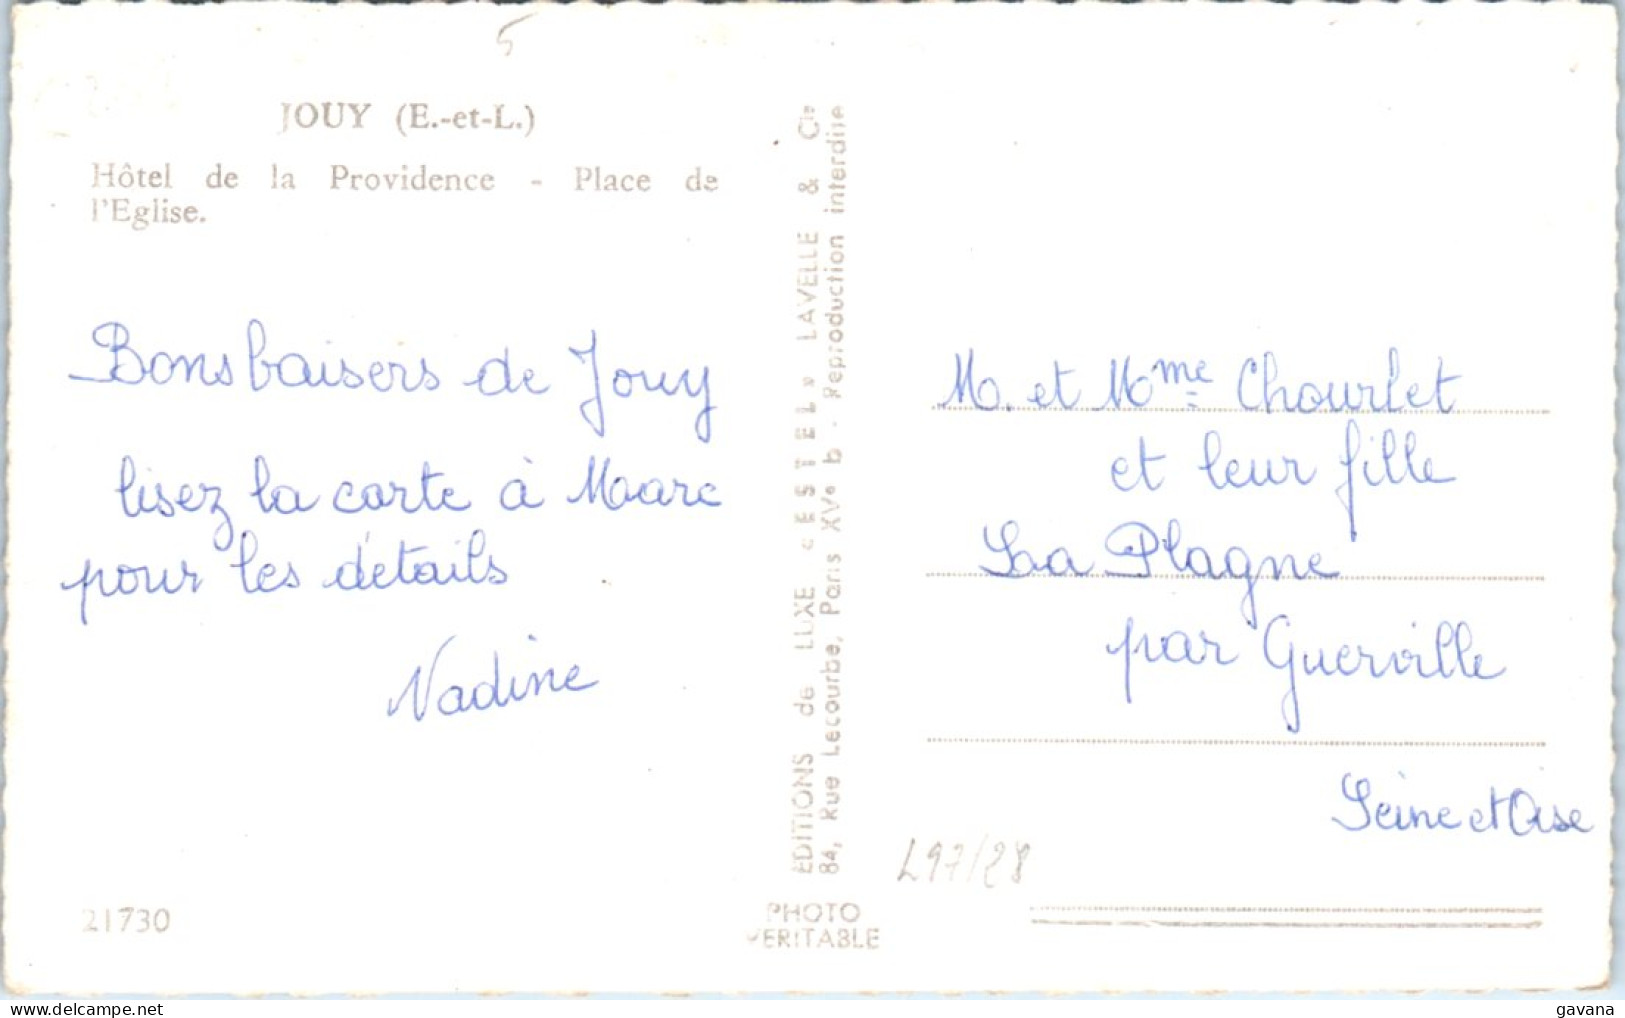 5
JOUY (E.-et-L.)
Hôtel de la Providence - Place de
l'Eglise.
Bons baisers de Jouy
lisez la carte à Marc
pour les détails
Nadine
21730
EDITIONS de LUXE « ESTEL » LAVELLE & Cie
84, Rue Lecourbe, Paris XVe b - Reproduction interdite
PHOTO
VERITABLE
M. et Mme Chourlet
et leur fille
La Plagne
par Guerville
Seine et Oise
L97/28
gavana